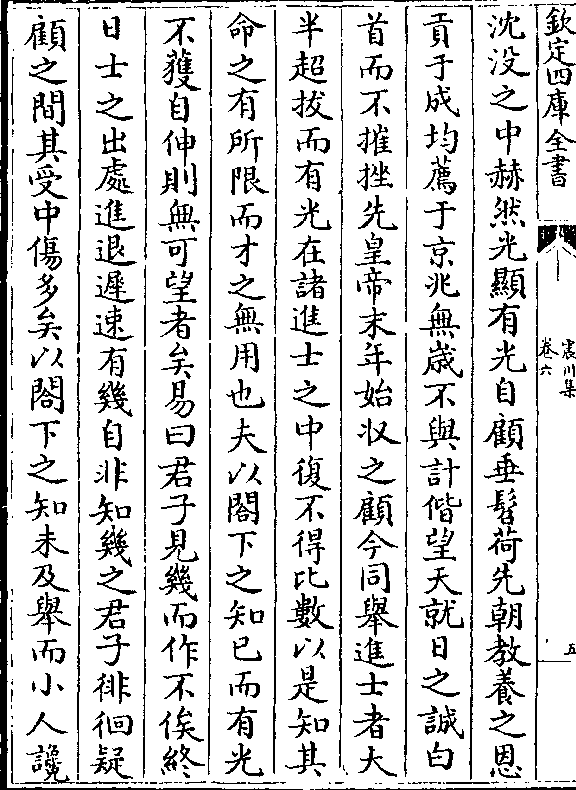 欽定四庫全書
震川集
卷六
五
沈没之中赫然光顯有光自顧垂髫荷先朝教養之恩
貢于成均薦于京兆無歳不與計偕望天就日之誠白
首而不摧挫先皇帝末年始収之顧今同舉進士者大
半超拔而有光在諸進士之中復不得比數以是知其
命之有所限而才之無用也夫以閣下之知已而有光
不獲自伸則無可望者矣易曰君子見幾而作不俟終
日士之出處進退遲速有幾自非知幾之君子徘徊疑
顧之間其受中傷多矣以閣下之知未及舉而小人讒